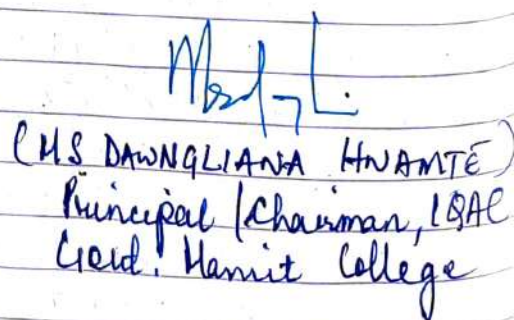 (MS DAWNGLIANA HNAMTE)
Principal / Chairman, IQAC
Govt. Mamit College